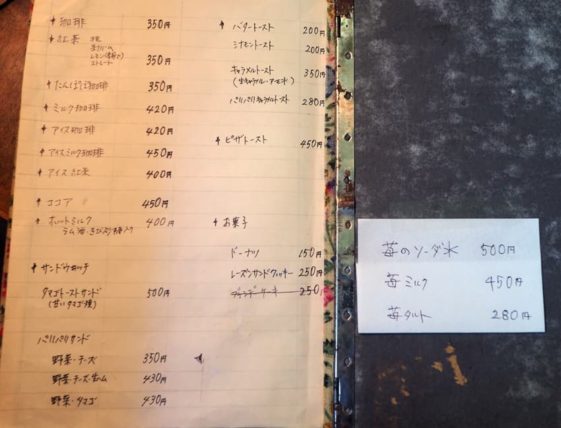 珈琲 350円
紅茶
ミルク
レモン
ストレート 350円
たんぽぽ珈琲 350円
ミルク珈琲 420円
アイス珈琲 420円
アイスミルク珈琲 450円
アイス紅茶 400円
ココア 450円
ホットミルク 400円
ラム酒・きび砂糖入り
サンドウィッチ
タマゴトーストサンド 500円
(甘いタマゴ焼)
パリパリサンド
野菜・チーズ 350円
野菜・チーズ・生ハム 430円
野菜・タマゴ 430円
バタートースト 200円
シナモントースト 200円
キャラメルトースト 350円
(生キャラメル・アーモンド)
パリパリキャラメルトースト 280円
ピザトースト 450円
お菓子
ドーナツ 150円
レーズンサンドクッキー 250円
ブランデーケーキ 250
苺のソーダ水 500円
苺ミルク 450円
苺タルト 280円